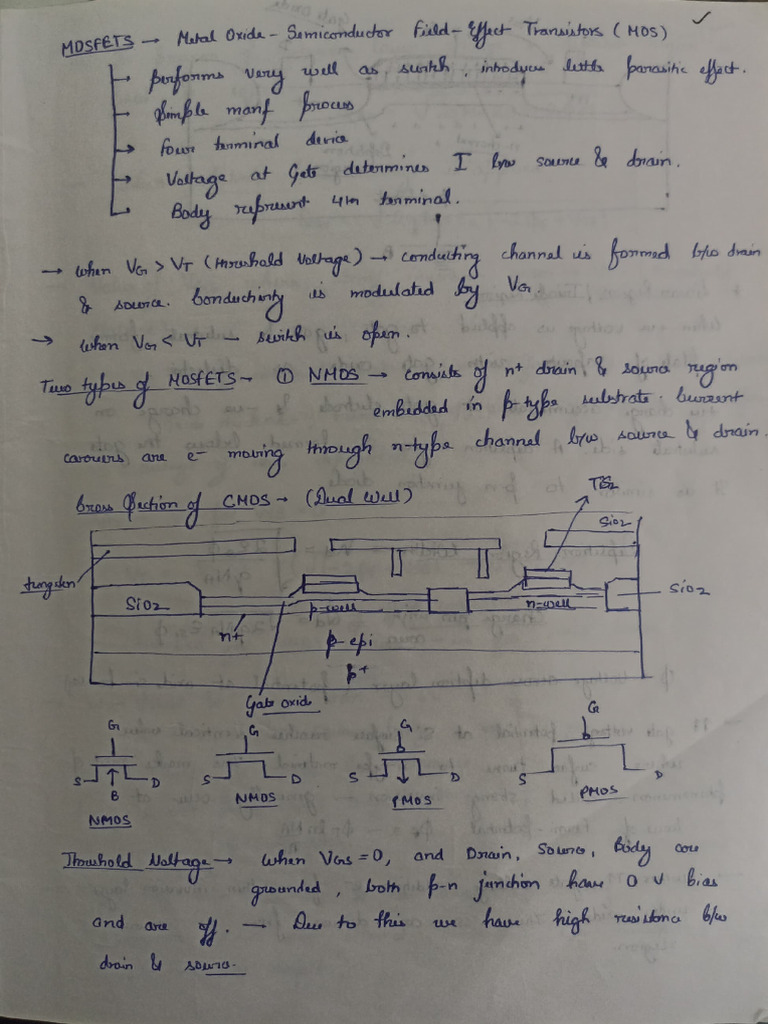 MOSFETS → Metal Oxide - Semiconductor Field - Effect Transistors (MOS)
→ performs very well as switch, introduces little parasitic effect.
→ Simple manf process
→ four terminal device
→ Voltage at Gate determines I b/w source & drain.
→ Body represent 4th terminal.
→ when VG > VT (threshold Voltage) → conducting channel is formed b/w drain
& source. Conductivity is modulated by VG
→ when VG < VT - switch is open.
Two types of MOSFETS - ① NMOS → consists of n+ drain & source region
embedded in p-type substrate. Current
carriers are e- moving through n-type channel b/w source & drain.
Cross Section of CMOS → (Dual Well)
TiSi2
SiO2
tungsten
SiO2
p-well
n-well
SiO2
n+
p-epi
p+
Gate oxide
G G G G
S D S D S D S D
B
NMOS NMOS PMOS PMOS
Threshold Voltage → When VGS = 0, and Drain, Source, Body are
grounded, both p-n junction have 0 V bias
and are off. → Due to this we have high resistance b/w
drain & source.